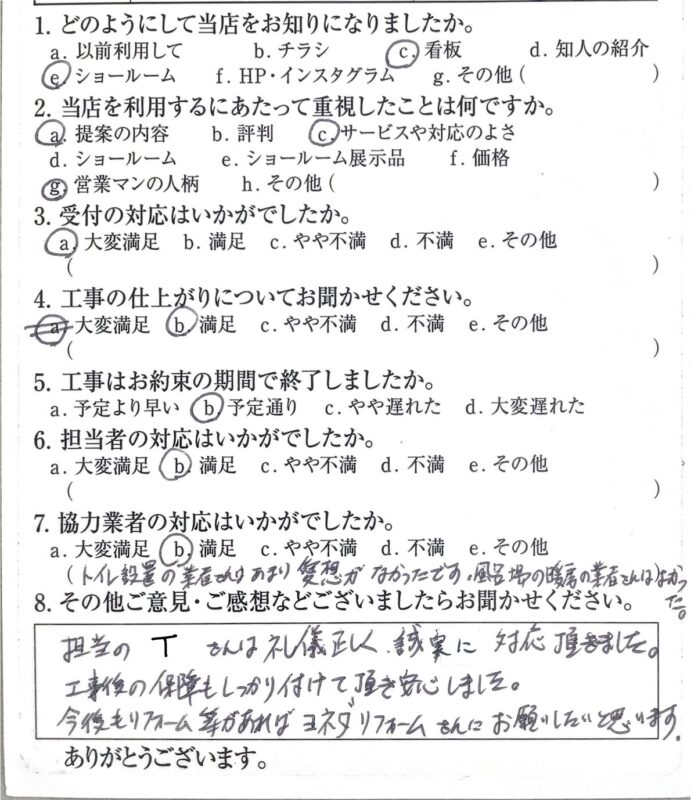 1. どのようにして当店をお知りになりましたか。
a. 以前利用して b. チラシ c. 看板 d. 知人の紹介
e. ショールーム f. HP・インスタグラム g. その他 ( )
2. 当店を利用するにあたって重視したことは何ですか。
a. 提案の内容 b. 評判 c. サービスや対応のよさ
d. ショールーム e. ショールーム展示品 f. 価格
g. 営業マンの人柄 h. その他 ( )
3. 受付の対応はいかがでしたか。
a. 大変満足 b. 満足 c. やや不満 d. 不満 e. その他
( )
4. 工事の仕上がりについてお聞かせください。
a. 大変満足 b. 満足 c. やや不満 d. 不満 e. その他
( )
5. 工事はお約束の期間で終了しましたか。
a. 予定より早い b. 予定通り c. やや遅れた d. 大変遅れた
6. 担当者の対応はいかがでしたか。
a. 大変満足 b. 満足 c. やや不満 d. 不満 e. その他
( )
7. 協力業者の対応はいかがでしたか。
a. 大変満足 b. 満足 c. やや不満 d. 不満 e. その他
(トイレ設置の業者さんはあまり愛想がなかったです。風呂場の暖房の業者さんはよかった。
8. その他ご意見・ご感想などございましたらお聞かせください。
担当の T さんは礼儀正しく、誠実に対応頂きました。
工事後の保障もしっかり付けて頂き安心しました。
今後もリフォーム等があればヨネダリフォームさんにお願いしたいと思います。
ありがとうございます。